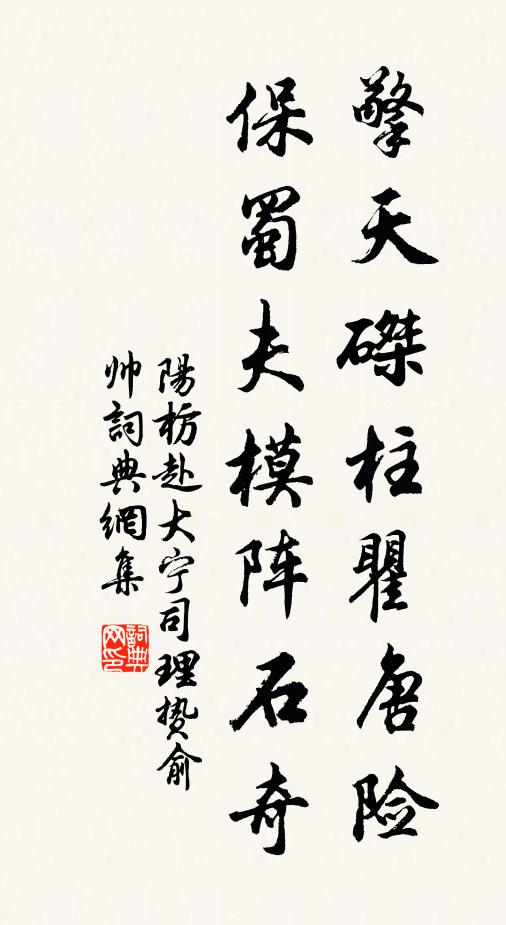 擎天磔柱瞿唐险
保蜀夫模阵石奇
陽枋赴大宁司理贽俞
帅詞典網集
詞典网印